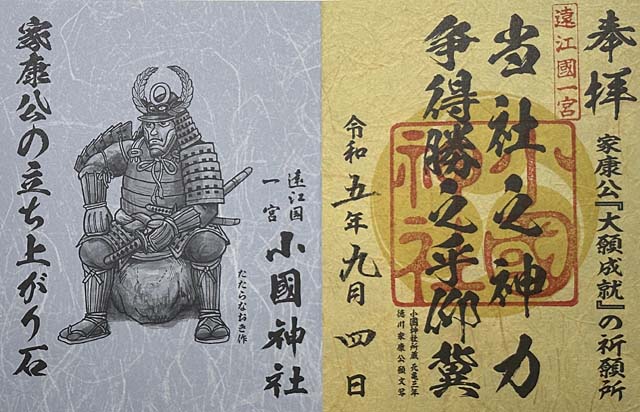 奉拝
家康公『大願成就』の祈願所
遠江國一宮
当社之神力
小國神社
争得勝之乎仰冀
小國神社所蔵 元亀三年
徳川家康公願文写
令和五年九月四日
小國神社
遠江国
一宮
たたらなおき作
家康公の立ち上がり石